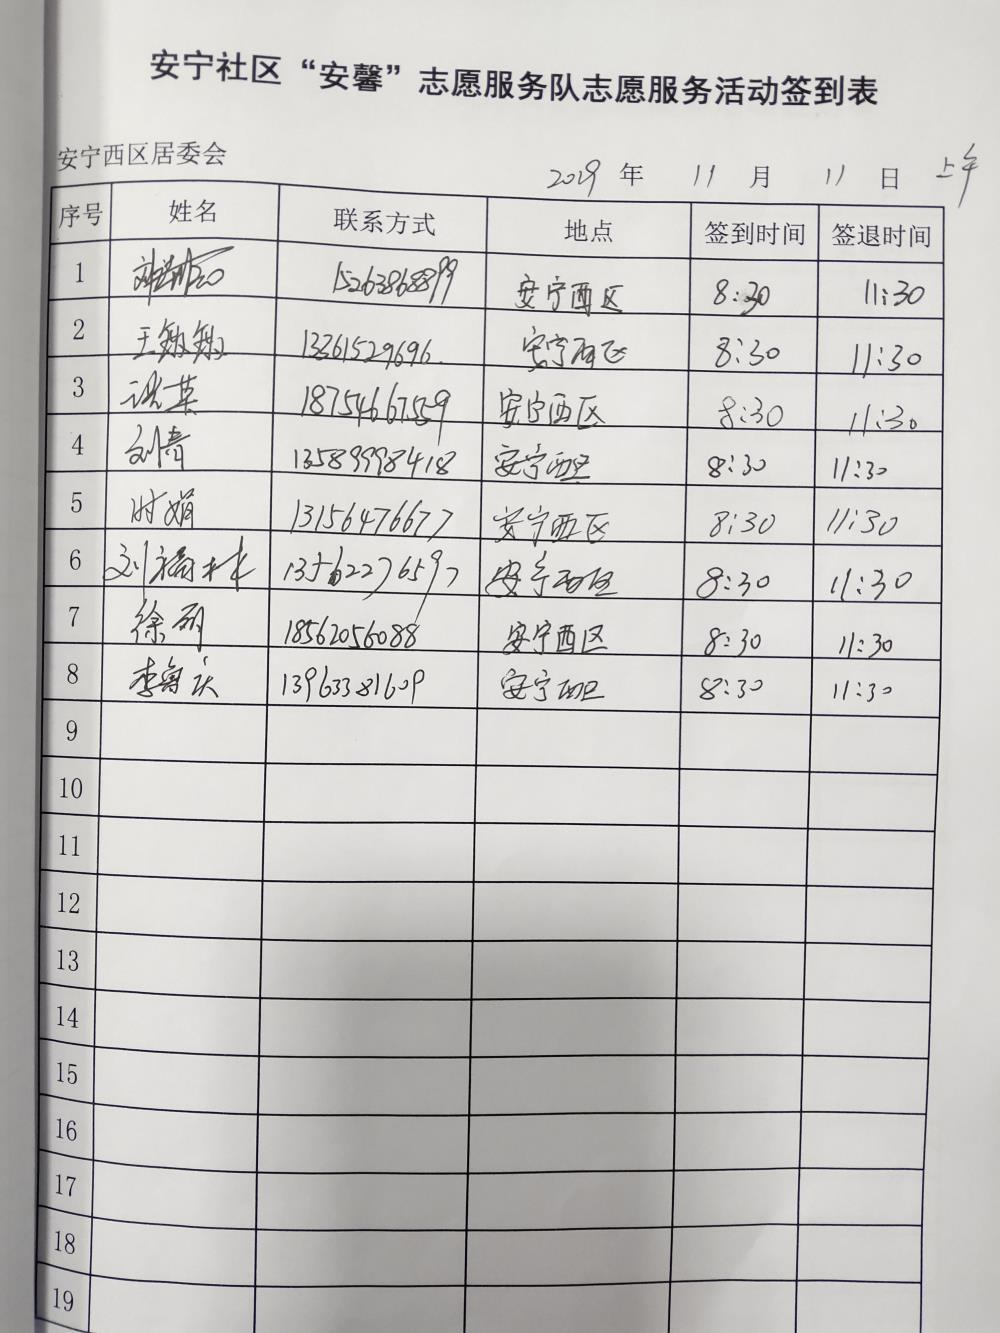 安宁社区“安馨”志愿服务队志愿服务活动签到表
安宁西区居委会 2019 年 11 月 11 日 上午
序号 姓名 联系方式 地点 签到时间 签退时间
1 15263868899 安宁西区 8:30 11:30
2 王敏敏 13361529696 安宁西区 8:30 11:30
3 英 18754667559 安宁西区 8:30 11:30
4 刘青 13589998418 安宁西区 8:30 11:30
5 时娟 13156476677 安宁西区 8:30 11:30
6 刘福林 13562276597 安宁西区 8:30 11:30
7 徐丽 18562056088 安宁西区 8:30 11:30
8 李鲁庆 13963381609 安宁西区 8:30 11:30
9
10
11
12
13
14
15
16
17
18
19